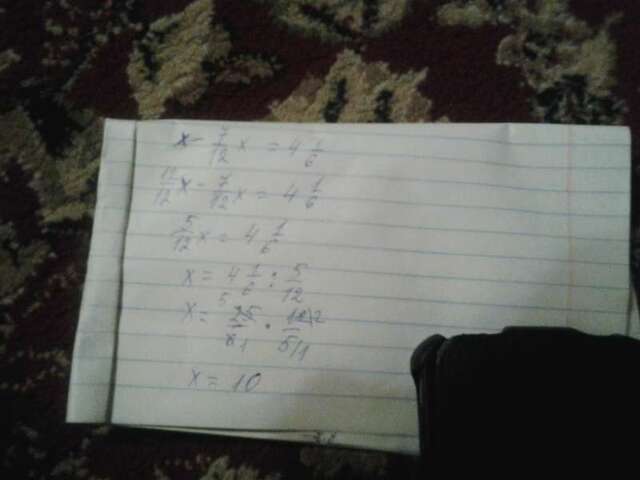 x - 7/12 x = 4 1/6
12/12 x - 7/12 x = 4 1/6
5/12 x = 4 1/6
x = 4 1/6 : 5/12
x = 25 5/6 1 · 12 2/5 1
x = 10